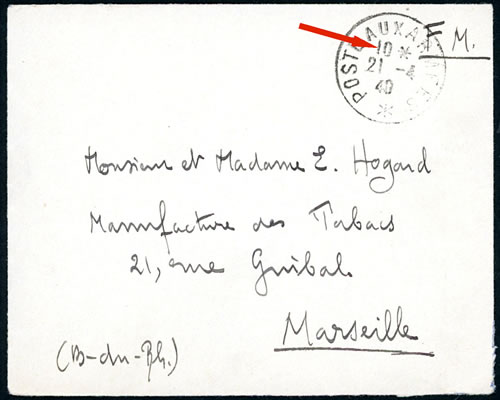 POSTE AUX ARMÉES
10 *
21 -4
40
*
F.M.
Monsieur et Madame E. Hogard
Manufacture des Tabacs
21, rue Guibal
Marseille
(B-du-Rh.)